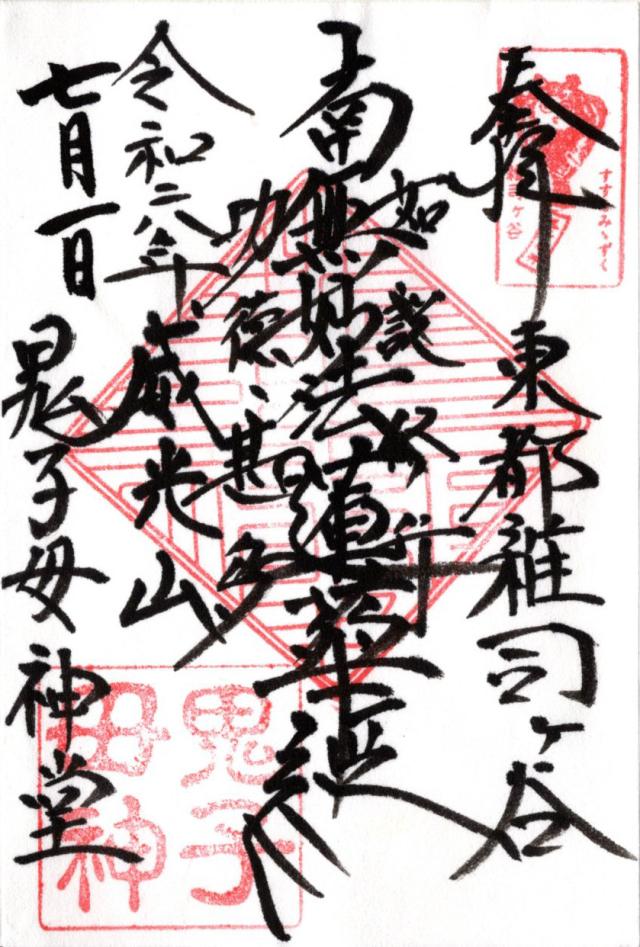 奉拝
東都雑司ヶ谷
如説修行
南無妙法蓮華経
功徳甚多
令和二年
威光山
七月一日
鬼子母神堂
すすきみゝずく
雑司ヶ谷
鬼子
母神